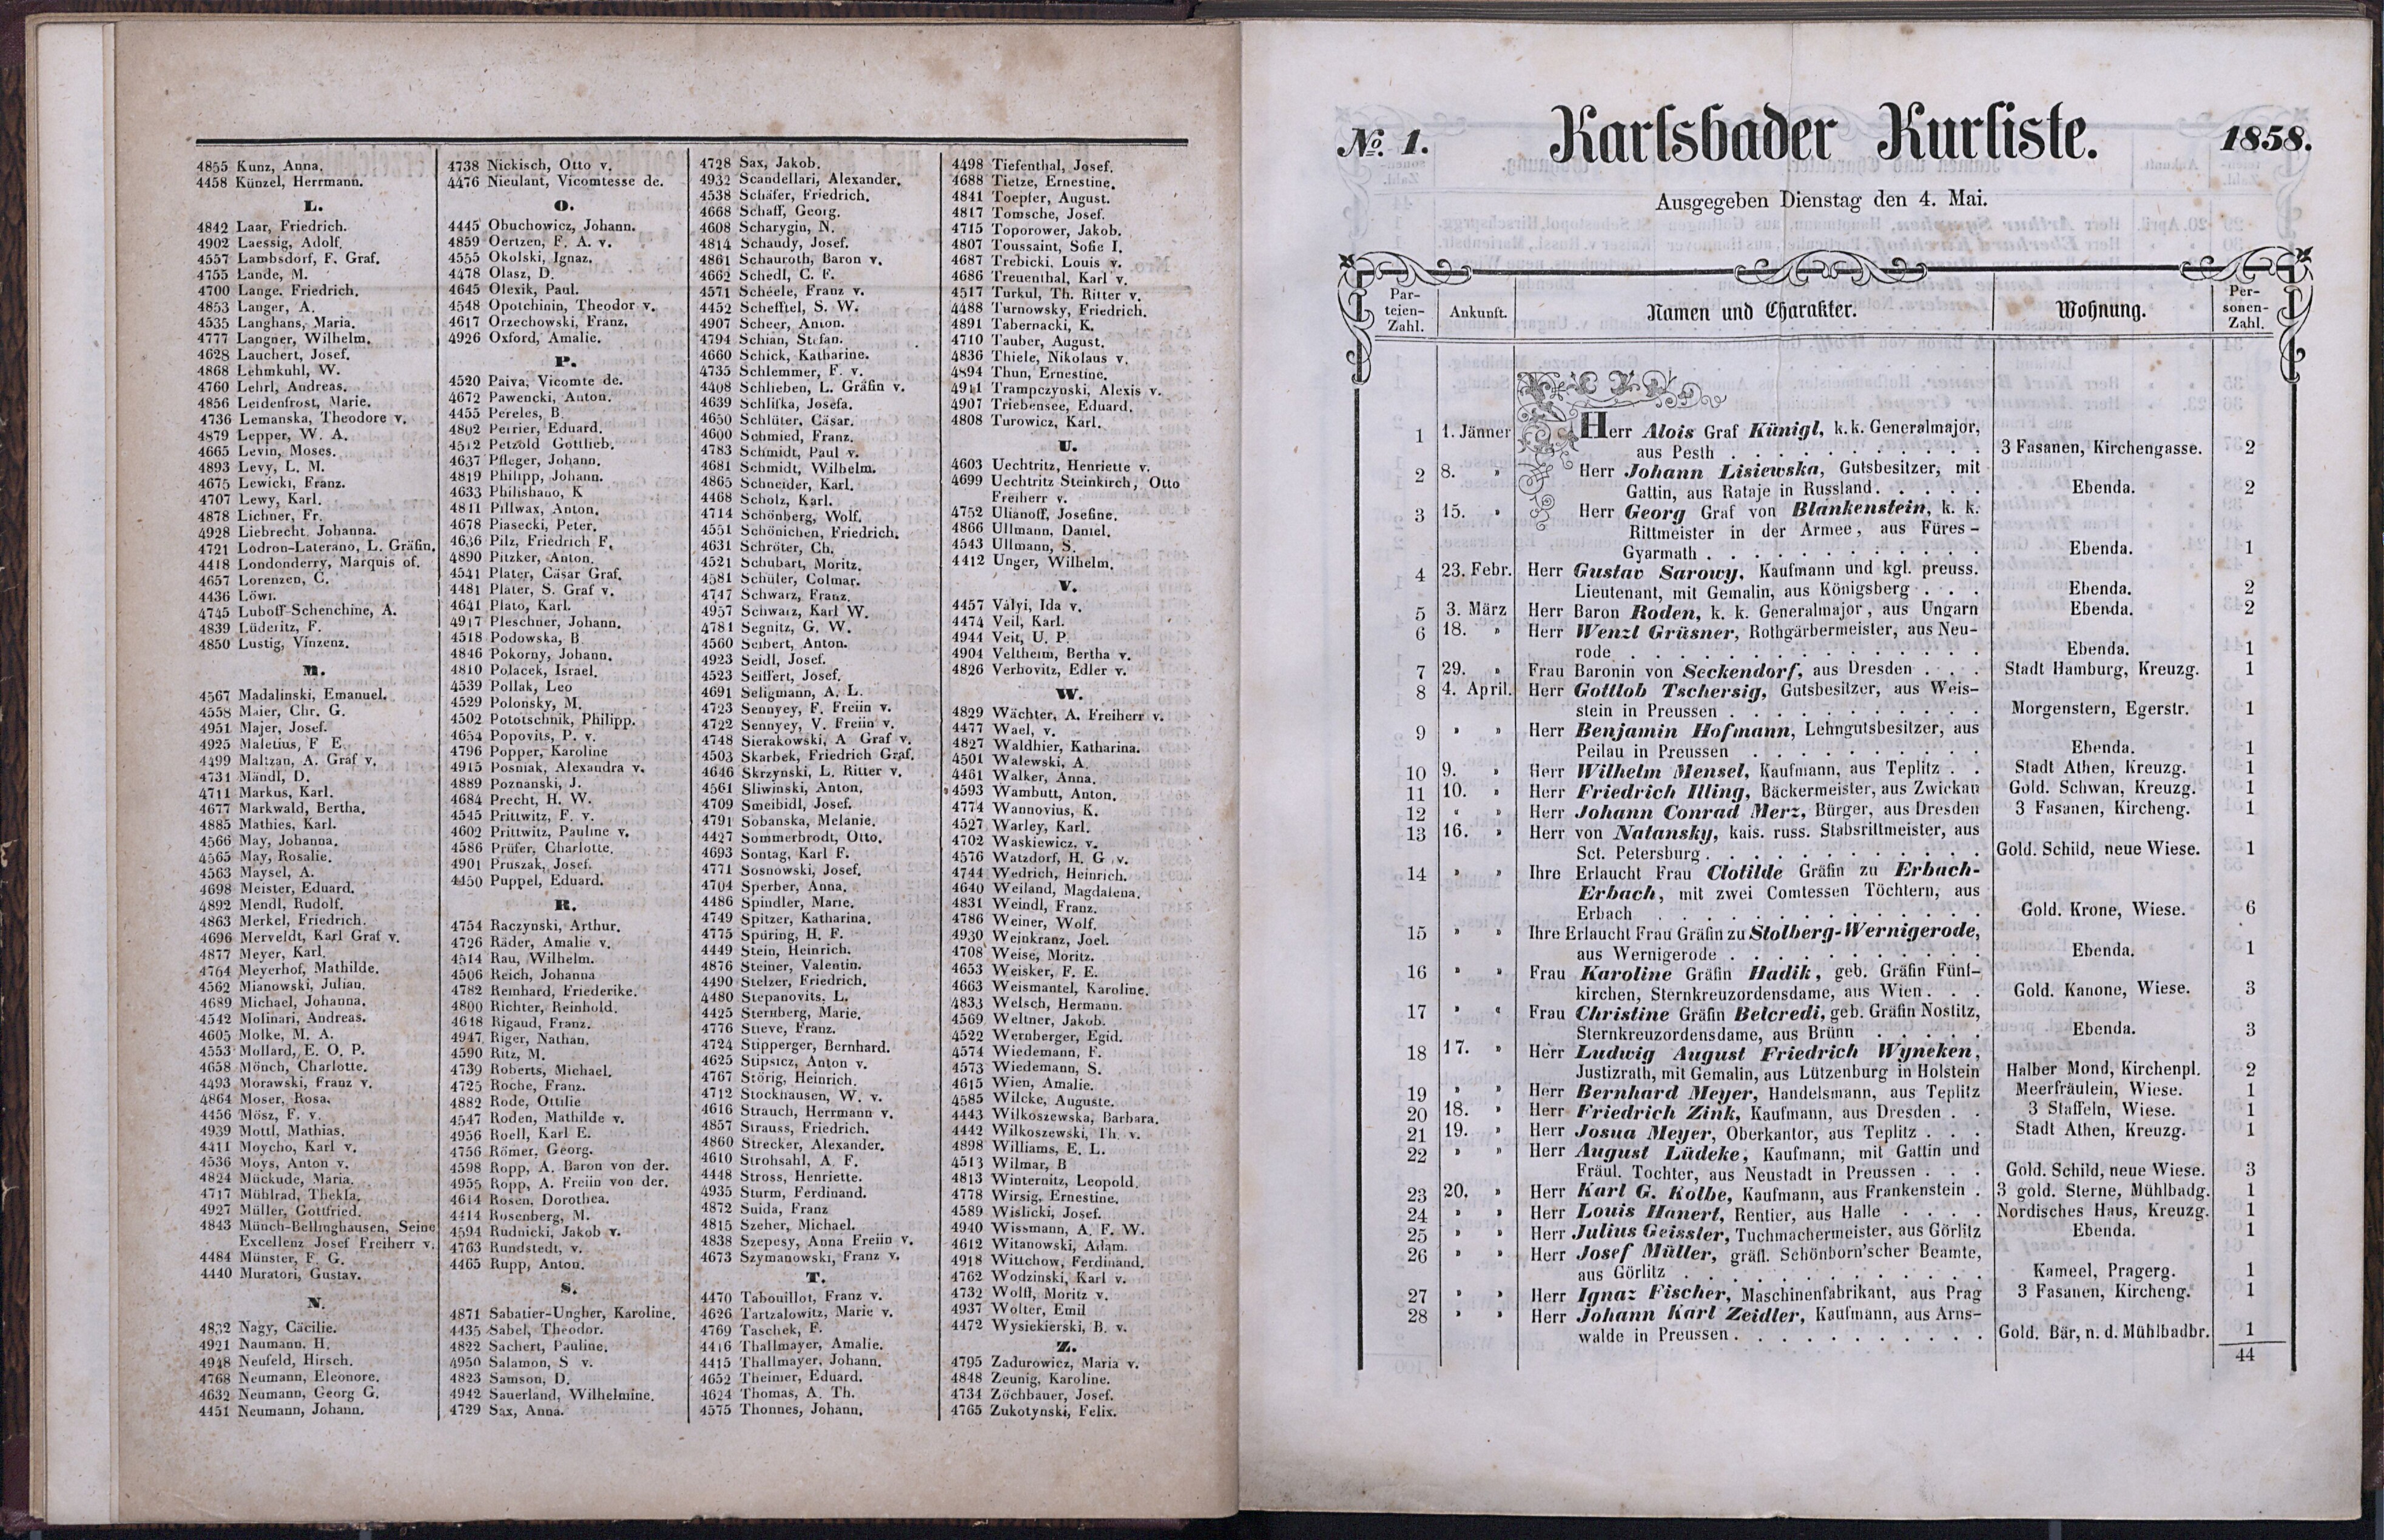 4855 Kunz, Anna.
4458 Künzel, Herrmann.
L.
4842 Laar, Friedrich.
4902 Laessig, Adolf.
4557 Lambsdorf, F. Graf.
4755 Lande, M.
4700 Lange, Friedrich.
4853 Langer, A.
4535 Langhans, Maria.
4777 Langner, Wilhelm.
4628 Lauchert, Josef.
4868 Lehmkuhl, W.
4760 Lehrl, Andreas.
4856 Leidenfrost, Marie.
4736 Lemanska, Theodore v.
4879 Lepper, W. A.
4665 Levin, Moses.
4893 Levy, L. M.
4675 Lewicki, Franz.
4707 Lewy, Karl.
4878 Lichner, Fr.
4928 Liebrecht, Johanna.
4721 Lodron-Laterano, L. Gräfin.
4418 Londonderry, Marquis of.
4657 Lorenzen, C.
4436 Löwi.
4745 Luboff-Schenchine, A.
4839 Lüderitz, F.
4850 Lustig, Vinzenz.
M.
4567 Madalinski, Emanuel.
4558 Maier, Chr. G.
4951 Majer, Josef.
4925 Maletius, F E.
4499 Maltzan, A. Graf v.
4731 Mändl, D.
4711 Markus, Karl.
4677 Markwald, Bertha.
4885 Mathies, Karl.
4566 May, Johanna.
4565 May, Rosalie.
4563 Maysel, A.
4698 Meister, Eduard.
4892 Mendl, Rudolf.
4863 Merkel, Friedrich.
4696 Merveldt, Karl Graf v.
4877 Meyer, Karl.
4764 Meyerhof, Mathilde.
4562 Mianowski, Julian.
4689 Michael, Johanna.
4542 Molinari, Andreas.
4605 Molke, M. A.
4553 Mollard, E. O. P.
4658 Mönch, Charlotte.
4493 Morawski, Franz v.
4864 Moser, Rosa.
4456 Mösz, F. v.
4939 Mottl, Mathias.
4411 Moycho, Karl v.
4536 Moys, Anton v.
4824 Mückude, Maria.
4717 Mühlrad, Thekla.
4927 Müller, Gottfried.
4843 Münch-Bellinghausen, Seine
Excellenz Josef Freiherr v.
4484 Münster, F. G.
4440 Muratori, Gustav.
N.
4832 Nagy, Cäcilie.
4921 Naumann, H.
4948 Neufeld, Hirsch.
4768 Neumann, Eleonore.
4632 Neumann, Georg G.
4451 Neumann, Johann.
4738 Nickisch, Otto v.
4476 Nieulant, Vicomtesse de.
O.
4445 Obuchowicz, Johann.
4859 Oertzen, F. A. v.
4555 Okolski, Ignaz.
4478 Olasz, D.
4645 Olexik, Paul.
4548 Opotchinin, Theodor v.
4617 Orzechowski, Franz.
4926 Oxford, Amalie.
P.
4520 Paiva, Vicomte de.
4672 Pawencki, Anton.
4455 Pereles, B.
4802 Perrier, Eduard.
4512 Petzold Gottlieb.
4637 Pfleger, Johann.
4819 Philipp, Johann.
4633 Philishano, K
4811 Pillwax, Anton.
4678 Piasecki, Peter.
4636 Pilz, Friedrich F.
4890 Pitzker, Anton.
4541 Plater, Cäsar Graf.
4481 Plater, S. Graf v.
4641 Plato, Karl.
4917 Pleschner, Johann.
4518 Podowska, B.
4846 Pokorny, Johann.
4810 Polacek, Israel.
4539 Pollak, Leo
4529 Polonsky, M.
4502 Pototschnik, Philipp.
4654 Popovits, P. v.
4796 Popper, Karoline
4915 Posniak, Alexandra v.
4889 Poznanski, J.
4684 Precht, H. W.
4545 Prittwitz, F. v.
4602 Prittwitz, Pauline v.
4586 Prüfer, Charlotte.
4901 Pruszak, Josef.
4450 Puppel, Eduard.
R.
4754 Raczynski, Arthur.
4726 Räder, Amalie v.
4514 Rau, Wilhelm.
4506 Reich, Johanna
4782 Reinhard, Friederike.
4800 Richter, Reinhold.
4618 Rigaud, Franz.
4947 Riger, Nathan.
4590 Ritz, M.
4739 Roberts, Michael.
4725 Roche, Franz.
4882 Rode, Ottilie
4547 Roden, Mathilde v.
4956 Roell, Karl E.
4756 Römer, Georg.
4598 Ropp, A. Baron von der.
4955 Ropp, A. Freiin von der.
4614 Rosen, Dorothea.
4414 Rosenberg, M.
4594 Rudnicki, Jakob v.
4763 Rundstedt, v.
4465 Rupp, Anton.
S.
4871 Sabatier-Ungher, Karoline.
4435 Sabel, Theodor.
4822 Sachert, Pauline.
4950 Salamon, S v.
4823 Samson, D.
4942 Sauerland, Wilhelmine.
4729 Sax, Anna.
4728 Sax, Jakob.
4932 Scandellari, Alexander.
4538 Schäfer, Friedrich.
4668 Schaff, Georg.
4608 Scharygin, N.
4814 Schaudy, Josef.
4861 Schauroth, Baron v.
4662 Schedl, C. F.
4571 Scheele, Franz v.
4452 Schefftel, S. W.
4907 Scheer, Anton.
4794 Schian, Stefan.
4660 Schick, Katharine.
4735 Schlemmer, F. v.
4408 Schlieben, L. Gräfin v.
4639 Schlifka, Josefa.
4650 Schlüter, Cäsar.
4600 Schmied, Franz.
4783 Schmidt, Paul v.
4681 Schmidt, Wilhelm.
4865 Schneider, Karl.
4468 Scholz, Karl.
4714 Schönberg, Wolf.
4551 Schönichen, Friedrich.
4631 Schröter, Ch.
4521 Schubart, Moritz.
4581 Schüler, Colmar.
4747 Schwarz, Franz.
4957 Schwarz, Karl W.
4781 Segnitz, G. W.
4560 Seibert, Anton.
4923 Seidl, Josef.
4523 Seiffert, Josef.
4691 Seligmann, A. L.
4723 Sennyey, F. Freiin v.
4722 Sennyey, V. Freiin v.
4748 Sierakowski, A Graf v.
4503 Skarbek, Friedrich Graf.
4646 Skrzynski, L. Ritter v.
4561 Sliwinski, Anton.
4709 Smeibidl, Josef.
4791 Sobanska, Melanie.
4427 Sommerbrodt, Otto.
4693 Sontag, Karl F.
4771 Sosnowski, Josef.
4704 Sperber, Anna.
4486 Spindler, Marie.
4749 Spitzer, Katharina.
4775 Spüring, H. F.
4449 Stein, Heinrich.
4876 Steiner, Valentin.
4490 Stelzer, Friedrich.
4480 Stepanovits, L.
4425 Sternberg, Marie.
4776 Stieve, Franz.
4724 Stipperger, Bernhard.
4625 Stipsicz, Anton v.
4767 Störig, Heinrich.
4712 Stockhausen, W. v.
4616 Strauch, Herrmann v.
4857 Strauss, Friedrich.
4860 Strecker, Alexander.
4610 Strohsahl, A. F.
4448 Stross, Henriette.
4935 Sturm, Ferdinand.
4872 Suida, Franz
4815 Szeher, Michael.
4838 Szepesy, Anna Freiin v.
4673 Szymanowski, Franz v.
T.
4470 Tabouillot, Franz v.
4626 Tartzalowitz, Marie v.
4769 Taschek, F.
4416 Thallmayer, Amalie.
4415 Thallmayer, Johann.
4652 Theimer, Eduard.
4624 Thomas, A. Th.
4575 Thonnes, Johann.
4498 Tiefenthal, Josef.
4688 Tietze, Ernestine.
4841 Toepfer, August.
4817 Tomsche, Josef.
4715 Toporower, Jakob.
4807 Toussaint, Sofie I.
4687 Trebicki, Louis v.
4686 Treuenthal, Karl v.
4517 Turkul, Th. Ritter v.
4488 Turnowsky, Friedrich.
4891 Tabernacki, K.
4710 Tauber, August.
4836 Thiele, Nikolaus v.
4894 Thun, Ernestine.
4911 Trampczynski, Alexis v.
4907 Triebensee, Eduard.
4808 Turowicz, Karl.
U.
4603 Uechtritz, Henriette v.
4699 Uechtritz Steinkirch, Otto
Freiherr v.
4752 Ulianoff, Josefine.
4866 Ullmann, Daniel.
4543 Ullmann, S.
4412 Unger, Wilhelm.
V.
4457 Vályi, Ida v.
4474 Veil, Karl.
4944 Veit, U. P.
4904 Veltheim, Bertha v.
4826 Verhovitz, Edler v.
W.
4829 Wächter, A. Freiherr v.
4477 Wael, v.
4827 Waldhier, Katharina.
4501 Walewski, A.
4461 Walker, Anna.
4593 Wambutt, Anton.
4774 Wannovius, K.
4527 Warley, Karl.
4702 Waskiewicz, v.
4576 Watzdorf, H. G. v.
4744 Wedrich, Heinrich.
4640 Weiland, Magdalena.
4831 Weindl, Franz.
4786 Weiner, Wolf.
4930 Weinkranz, Joel.
4708 Weise, Moritz.
4653 Weisker, F. E.
4663 Weismantel, Karoline.
4833 Welsch, Hermann.
4569 Weltner, Jakob.
4522 Wernberger, Egid.
4574 Wiedemann, F.
4573 Wiedemann, S.
4615 Wien, Amalie.
4585 Wilcke, Auguste.
4443 Wilkoszewska, Barbara.
4442 Wilkoszewski, Th. v.
4898 Williams, E. L.
4513 Wilmar, B
4813 Winternitz, Leopold.
4778 Wirsig, Ernestine.
4589 Wislicki, Josef.
4940 Wissmann, A. F. W.
4612 Witanowski, Adam.
4918 Wittchow, Ferdinand.
4762 Wodzinski, Karl v.
4732 Wolff, Moritz v.
4937 Wolter, Emil
4472 Wysiekierski, B. v.
Z.
4795 Zadurowicz, Maria v.
4848 Zeunig, Karoline.
4734 Zöchbauer, Josef.
4765 Zukotynski, Felix.
No. 1. Karlsbader Kurliste. 1858.
Ausgegeben Dienstag den 4. Mai.
Parteien-Zahl. Ankunft. Namen und Charakter. Wohnung. Personen-Zahl.
1 1. Jänner Herr Alois Graf Künigl, k. k. Generalmajor,
aus Pesth . . . 3 Fasanen, Kirchengasse. 2
2 8. " Herr Johann Lisiewska, Gutsbesitzer, mit
Gattin, aus Rataje in Russland. . . . Ebenda. 2
3 15. " Herr Georg Graf von Blankenstein, k. k.
Rittmeister in der Armee, aus Füres-
Gyarmath . . . Ebenda. 1
4 23. Febr. Herr Gustav Sarowy, Kaufmann und kgl. preuss.
Lieutenant, mit Gemalin, aus Königsberg . . . Ebenda. 2
5 3. März Herr Baron Roden, k. k. Generalmajor, aus Ungarn Ebenda. 2
6 18. " Herr Wenzl Grüsner, Rothgärbermeister, aus Neu-
rode . . . Ebenda. 1
7 29. " Frau Baronin von Seckendorf, aus Dresden . . . Stadt Hamburg, Kreuzg. 1
8 4. April. Herr Gottlob Tschersig, Gutsbesitzer, aus Weis-
stein in Preussen . . . Morgenstern, Egerstr. 1
9 " " Herr Benjamin Hofmann, Lehngutsbesitzer, aus
Peilau in Preussen . . . Ebenda. 1
10 9. " Herr Wilhelm Mensel, Kaufmann, aus Teplitz . . Stadt Athen, Kreuzg. 1
11 10. " Herr Friedrich Illing, Bäckermeister, aus Zwickau Gold. Schwan, Kreuzg. 1
12 " " Herr Johann Conrad Merz, Bürger, aus Dresden 3 Fasanen, Kircheng. 1
13 16. " Herr von Natansky, kais. russ. Stabsrittmeister, aus
Sct. Petersburg . . . Gold. Schild, neue Wiese. 1
14 " " Ihre Erlaucht Frau Clotilde Gräfin zu Erbach-
Erbach, mit zwei Comtessen Töchtern, aus
Erbach . . . Gold. Krone, Wiese. 6
15 " " Ihre Erlaucht Frau Gräfin zu Stolberg-Wernigerode,
aus Wernigerode . . . Ebenda. 1
16 " " Frau Karoline Gräfin Hadik, geb. Gräfin Fünf-
kirchen, Sternkreuzordensdame, aus Wien . . . Gold. Kanone, Wiese. 3
17 " " Frau Christine Gräfin Belcredi, geb. Gräfin Nostitz,
Sternkreuzordensdame, aus Brünn . . . Ebenda. 3
18 17. " Herr Ludwig August Friedrich Wyneken,
Justizrath, mit Gemalin, aus Lützenburg in Holstein Halber Mond, Kirchenpl. 2
19 " " Herr Bernhard Meyer, Handelsmann, aus Teplitz Meerfräulein, Wiese. 1
20 18. " Herr Friedrich Zink, Kaufmann, aus Dresden . . 3 Staffeln, Wiese. 1
21 19. " Herr Josua Meyer, Oberkantor, aus Teplitz . . . Stadt Athen, Kreuzg. 1
22 " " Herr August Lüdeke, Kaufmann, mit Gattin und
Fräul. Tochter, aus Neustadt in Preussen . . . Gold. Schild, neue Wiese. 3
23 20. " Herr Karl G. Kolbe, Kaufmann, aus Frankenstein . 3 gold. Sterne, Mühlbadg. 1
24 " " Herr Louis Hanert, Rentier, aus Halle . . . . Nordisches Haus, Kreuzg. 1
25 " " Herr Julius Geissler, Tuchmachermeister, aus Görlitz Ebenda. 1
26 " " Herr Josef Müller, gräfl. Schönborn'scher Beamte,
aus Görlitz . . . Kameel, Pragerg. 1
27 " " Herr Ignaz Fischer, Maschinenfabrikant, aus Prag 3 Fasanen, Kircheng. 1
28 " " Herr Johann Karl Zeidler, Kaufmann, aus Arns-
walde in Preussen . . . Gold. Bär, n. d. Mühlbadbr. 1
44